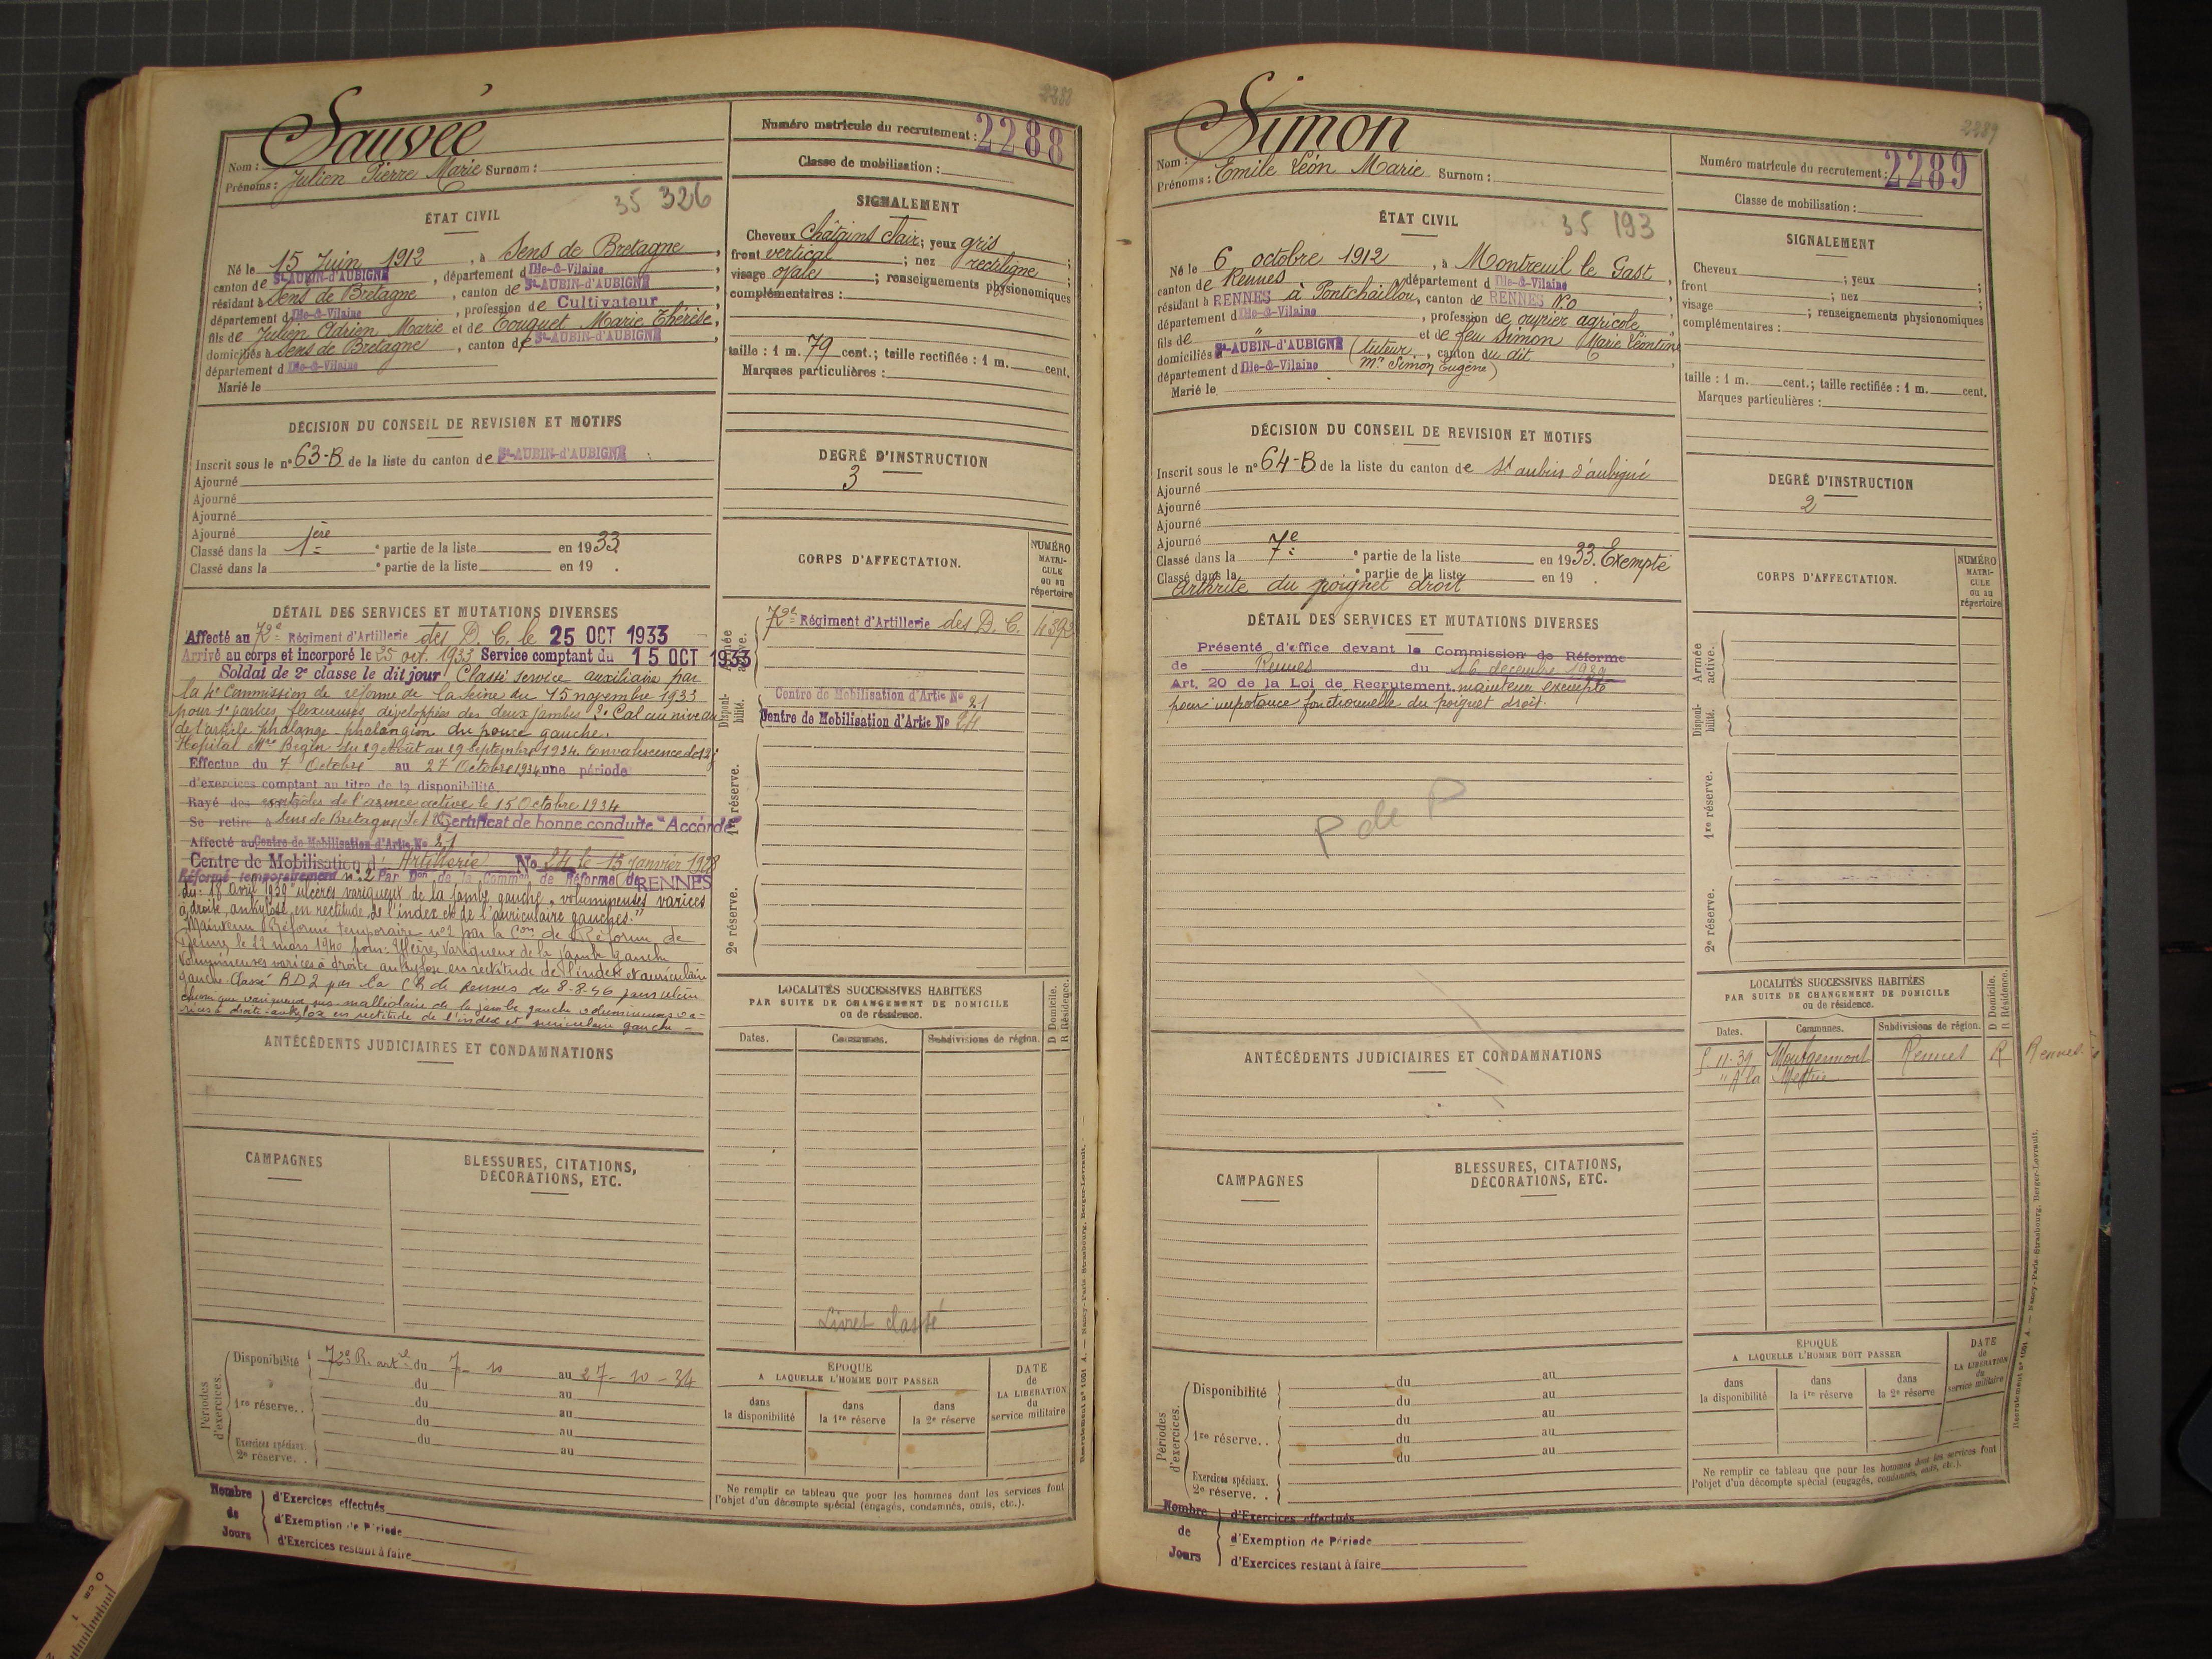 2288
Sauvée
Nom :
Prénoms : Julien Pierre Marie Surnom :
35 326
ÉTAT CIVIL
Né le 15 Juin 1912, à Sens de Bretagne,
canton de St-AUBIN-d'AUBIGNÉ, département d Ille-&-Vilaine,
résidant à Sens de Bretagne, canton de St-AUBIN-d'AUBIGNÉ
département d Ille-&-Vilaine, profession de Cultivateur,
fils de Julien Adrien Marie et de Touquet Marie Thérèse,
domiciliés à Sens de Bretagne, canton de St-AUBIN-d'AUBIGNÉ
département d Ille-&-Vilaine
Marié le
DÉCISION DU CONSEIL DE REVISION ET MOTIFS
Inscrit sous le n° 63-B de la liste du canton de St-AUBIN-d'AUBIGNÉ
Ajourné
Ajourné
Ajourné
Ajourné
Classé dans la 1ère e partie de la liste en 1933
Classé dans la e partie de la liste en 19 .
DÉTAIL DES SERVICES ET MUTATIONS DIVERSES
Affecté au 72e Régiment d'Artillerie des D. C. le 25 OCT 1933
Arrivé au corps et incorporé le 25 oct. 1933 Service comptant du 15 OCT 1933
Soldat de 2e classe le dit jour Classé service auxiliaire par
la 4e Commission de réforme de la Seine du 15 novembre 1933
pour 1° varices flexueuses développées des deux jambes 2° Cal au niveau
de l'article phalange phalangien du pouce gauche.
Hopital Mre Begin du 29 Août au 29 Septembre 1934. Convalescence de
Effectue du 7 Octobre au 27 Octobre 1934 une période
d'exercices comptant au titre de la disponibilité.
Rayé des contrôles de l'armée active le 15 Octobre 1934
Se retire à Sens de Bretagne Certificat de bonne conduite "Accordé"
Affecté au Centre de Mobilisation d'Artie No 21
Centre de Mobilisation d'Artillerie No 24 le 15 Janvier 1938
Réformé temporairement n° 2 Par Don de la Common de Réforme de RENNES
du : 18 avril 1939 "ulcères variqueux de la jambe gauche, volumineuses varices
à droite, ankylose en rectitude de l'index et de l'auriculaire gauches."
Maintenu Réforme temporaire n°2 par la Con de Réforme de
Rennes le 22 mars 1940 pour : Ulcère variqueux de la jambe gauche
Volumineuses varices à droite ankylose en rectitude de l'index et auriculaire
gauche. Classé RD2 par la CR de Rennes du 8-8-56 pour ulcère
chronique variqueux sus-malléolaire de la jambe gauche volumineuses va-
rices à droite - ankylose en rectitude de l'index et auriculaire gauche -
ANTÉCÉDENTS JUDICIAIRES ET CONDAMNATIONS
CAMPAGNES
BLESSURES, CITATIONS,
DÉCORATIONS, ETC.
Périodes d'exercices.
Disponibilité 72e R. artie du 7 - 10 au 27 - 10 - 34
du au
1re réserve. . du au
du au
du au
Exercices spéciaux.
2e réserve. . au
Nombre de Jours
d'Exercices effectués
d'Exemption de Période
d'Exercices restant à faire
Numéro matricule du recrutement : 2288
Classe de mobilisation :
SIGNALEMENT
Cheveux Châtains clair ; yeux gris
front vertical ; nez rectiligne ;
visage ovale ; renseignements physionomiques
complémentaires :
taille : 1 m. 79 cent. ; taille rectifiée : 1 m. cent.
Marques particulières :
DEGRÉ D'INSTRUCTION
3
CORPS D'AFFECTATION.
NUMÉRO MATRI-CULE ou au répertoire
Armée active.
72e Régiment d'Artillerie des D. C. 4392
Disponi-bilité.
Centre de Mobilisation d'Artie No 21
Centre de Mobilisation d'Artie No 24
1re réserve.
2e réserve.
LOCALITÉS SUCCESSIVES HABITÉES
PAR SUITE DE CHANGEMENT DE DOMICILE
ou de résidence.
D Domicile.
R Résidence.
Dates. Communes. Subdivisions de région.
Livret classé
ÉPOQUE
A LAQUELLE L'HOMME DOIT PASSER
DATE de LA LIBÉRATION du service militaire
dans la disponibilité
dans la 1re réserve
dans la 2e réserve
Ne remplir ce tableau que pour les hommes dont les services font
l'objet d'un décompte spécial (engagés, condamnés, omis, etc.).
Recrutement N° 1051 A. — Nancy-Paris-Strasbourg, Berger-Levrault.
2289
Simon
Nom :
Prénoms : Emile Léon Marie Surnom :
35 193
ÉTAT CIVIL
Né le 6 octobre 1912, à Montreuil le Gast,
canton de Rennes, département d Ille-&-Vilaine,
résidant à RENNES à Pontchaillou, canton de RENNES N.O
département d Ille-&-Vilaine, profession de ouvrier agricole,
fils de " et de feu Simon Marie Léontine
domiciliés St-AUBIN-d'AUBIGNÉ (tuteur, canton du dit
département d Ille-&-Vilaine Mr Simon Eugène)
Marié le
DÉCISION DU CONSEIL DE REVISION ET MOTIFS
Inscrit sous le n° 64-B de la liste du canton de St aubin d'aubigné
Ajourné
Ajourné
Ajourné
Ajourné
Classé dans la 7e e partie de la liste en 1933. Exempté
Classé dans la e partie de la liste en 19 .
arthrite du poignet droit
DÉTAIL DES SERVICES ET MUTATIONS DIVERSES
Présenté d'office devant la Commission de Réforme
de Rennes du 16 décembre 1939
Art. 20 de la Loi de Recrutement. maintenu exempté
pour impotance fonctionnelle du poignet droit.
P de P
ANTÉCÉDENTS JUDICIAIRES ET CONDAMNATIONS
CAMPAGNES
BLESSURES, CITATIONS,
DÉCORATIONS, ETC.
Périodes d'exercices.
Disponibilité du au
du au
1re réserve. . du au
du au
du au
Exercices spéciaux.
2e réserve. .
Nombre de Jours
d'Exercices effectués
d'Exemption de Période
d'Exercices restant à faire
Numéro matricule du recrutement : 2289
Classe de mobilisation :
SIGNALEMENT
Cheveux ; yeux
front ; nez ;
visage ; renseignements physionomiques
complémentaires :
taille : 1 m. cent. ; taille rectifiée : 1 m. cent.
Marques particulières :
DEGRÉ D'INSTRUCTION
2
CORPS D'AFFECTATION.
NUMÉRO MATRI-CULE ou au répertoire
Armée active.
Disponi-bilité.
1re réserve.
2e réserve.
LOCALITÉS SUCCESSIVES HABITÉES
PAR SUITE DE CHANGEMENT DE DOMICILE
ou de résidence.
D Domicile.
R Résidence.
Dates. Communes. Subdivisions de région.
11-39 Montgermont Rennes R Rennes.
" A la
ÉPOQUE
A LAQUELLE L'HOMME DOIT PASSER
DATE de LA LIBÉRATION du service militaire
dans la disponibilité
dans la 1re réserve
dans la 2e réserve
Ne remplir ce tableau que pour les hommes dont les services font
l'objet d'un décompte spécial (engagés, condamnés, omis, etc.).
Recrutement N° 1051 A. — Nancy-Paris-Strasbourg, Berger-Levrault.
0 cm 1